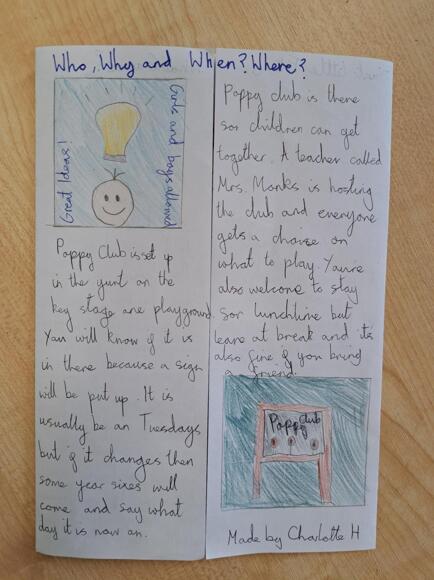 Who, Why and When? Where?
Great Ideas!
Girls and boys allowed
Poppy Club is set up
in the yurt on the
key stage one playground.
You will know if it is
in there because a sign
will be put up. It is
usually be on Tuesdays
but if it changes then
some year sixes will
come and say what
day it is now on.
Poppy club is there
for children can get
together. A teacher called
Mrs. Monks is hosting
the club and everyone
gets a choise on
what to play. You're
also welcome to stay
for lunchtime but
leave at break and it's
also fine if you bring
a friend.
Poppy Club
Made by Charlotte H